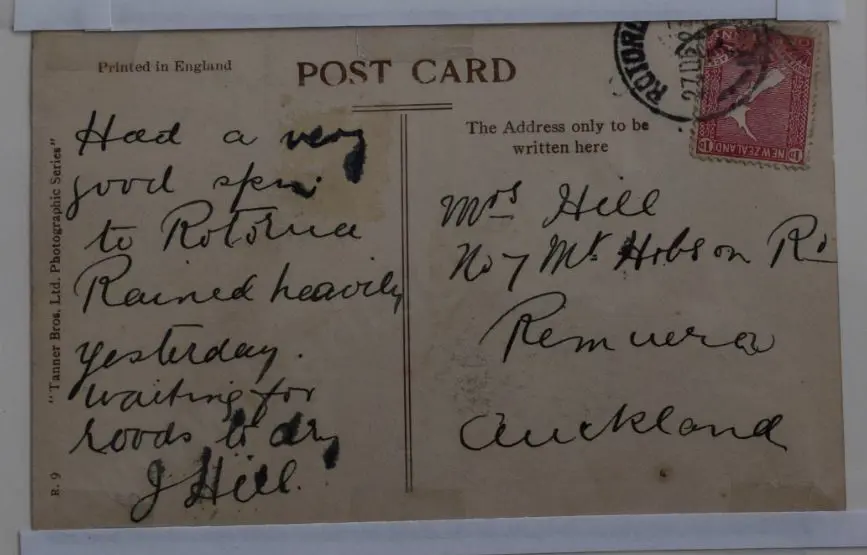 Printed in England
POST CARD
"Tanner Bros. Ltd. Photographic Series"
R. 9
Had a very
good spin
to Rotorua
Rained heavily
yesterday.
waiting for
roads to dry
J Hill.
The Address only to be
written here
Mrs Hill
No 7 Mt Hobson Rd
Remuera
Auckland
ROTORU
NEW ZEALAND
1D 1D